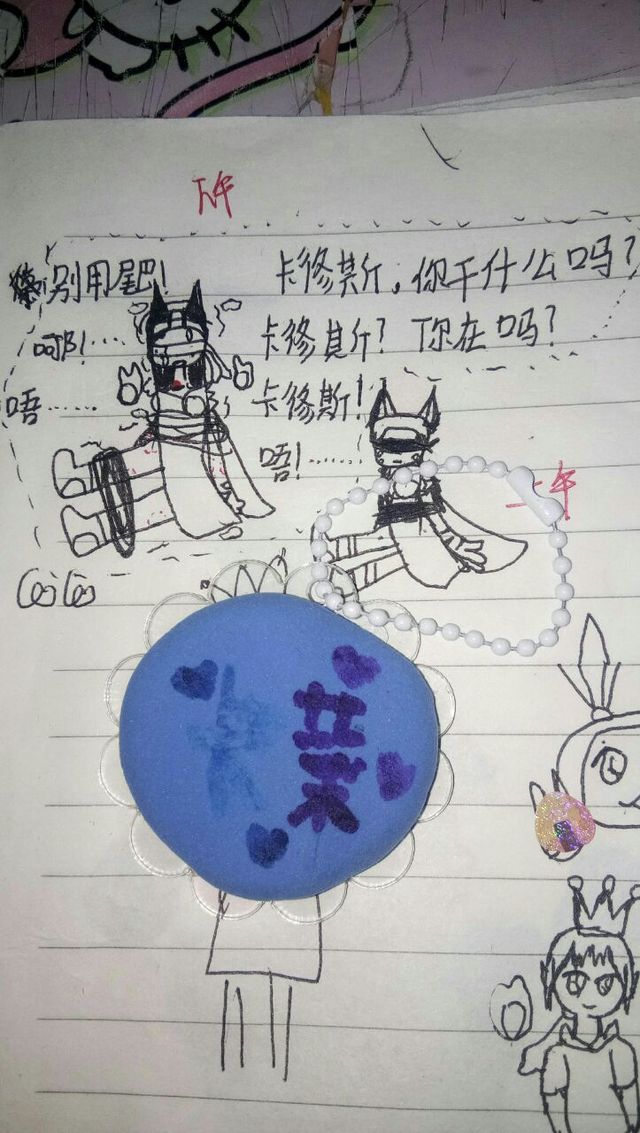 下午
别用尾巴!
呵!……
唔……
卡修斯,你干什么吗?
卡修斯?你在吗?
卡修斯!
唔!……
上午